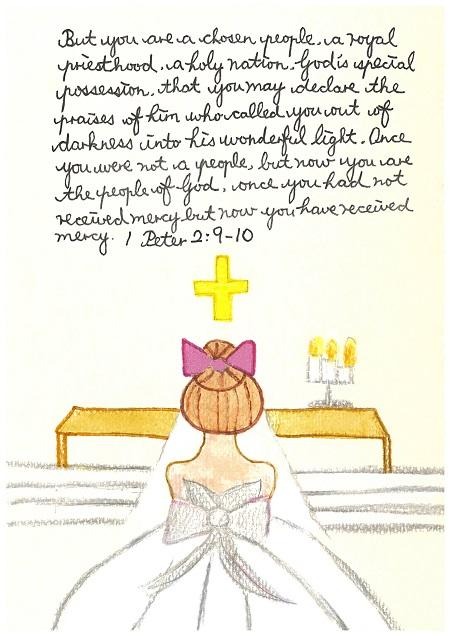 But you are a chosen people, a royal
priesthood, a holy nation, God's special
possession, that you may declare the
praises of him who called you out of
darkness into his wonderful light. Once
you were not a people, but now you are
the people of God; once you had not
received mercy but now you have received
mercy. 1 Peter 2:9-10